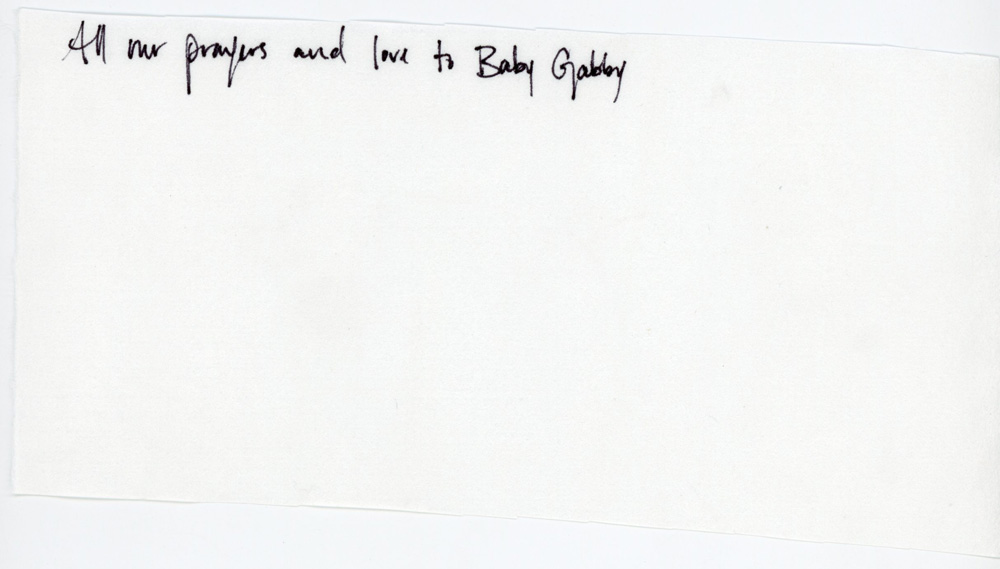 All our prayers and love to Baby Gabby